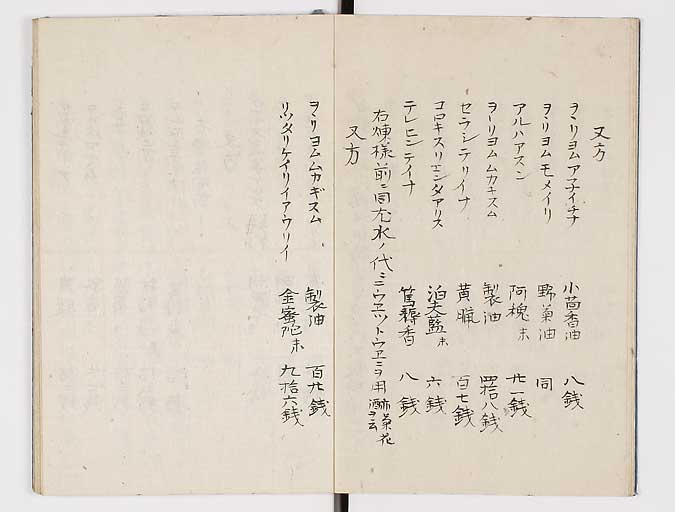 又方
ヲヽリヨムアネイチナ 小茴香油 八銭
ヲヽリヨムモメイリ 野菊油 同
アルハアスン 阿槐末 廿一銭
ヲヽリヨムムカキスム 製油 四拾八銭
セウシテリイナ 黄臘 百七銭
コロキスリエンタアリス 泊夫藍末 六銭
テレヒンテイナ 篤耨香 八銭
右煉様前ニ同尤水ノ代ミニウエツトウエニヲ用 菊花ヲ云
又方
ヲヽリヨムムカギスム 製油 百九銭
リツタリケイリイアウリイ 金蜜陀末 九拾六銭